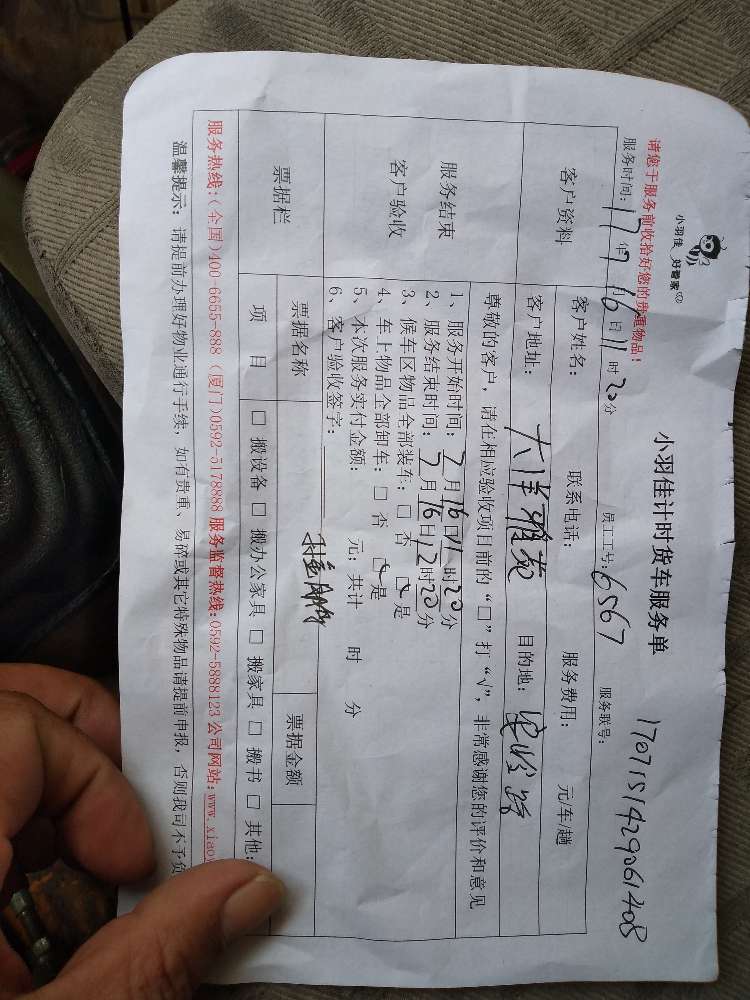 小羽佳 好管家
小羽佳计时货车服务单
1707151429061408
请您于服务前收拾好您的贵重物品！
服务时间：17年7月16日11时20分 员工工号：6567 服务联号：
客户资料 客户姓名： 联系电话： 服务费用： 元/车/趟
客户地址：大洋雅苑 目的地：
尊敬的客户，请在相应验收项目前的“□”打“√”，非常感谢您的评价和意见
服务结束
客户验收
1、服务开始时间：7月16日11时20分
2、服务结束时间：7月16日12时20分
3、候车区物品全部装车：□ 否 □ 是
4、车上物品全部卸车：□ 否 □ 是
5、本次服务实付金额： 元；共计 时 分
6、客户验收签字：
票据栏 票据名称 票据金额
项 目 □ 搬设备 □ 搬办公家具 □ 搬家具 □ 搬书 □ 其他：
服务热线：(全国)400-6655-888 (厦门)0592-5178888 服务监督热线：0592-5888123 公司网站：www.xiao
温馨提示：请提前办理好物业通行手续，如有贵重、易碎或其它特殊物品请提前申报，否则我司不予负